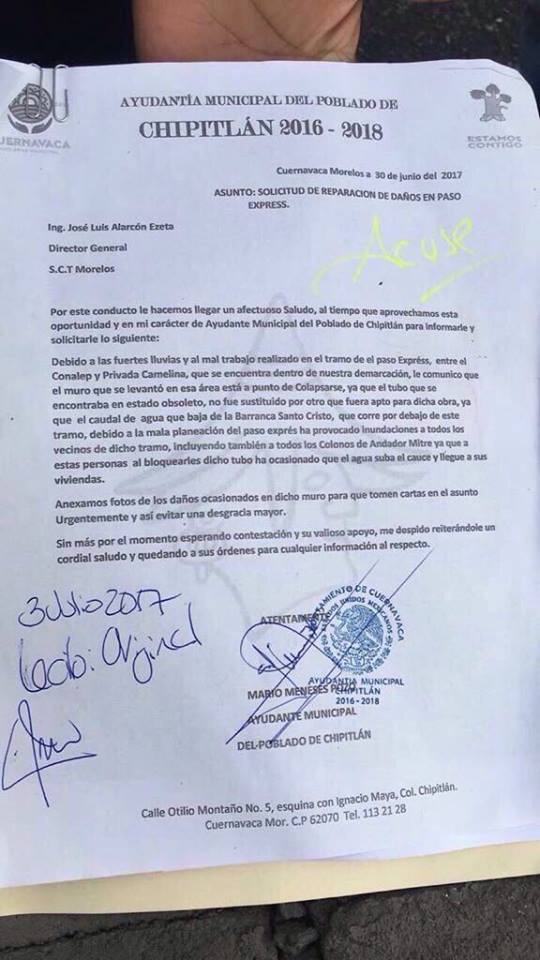 CUERNAVACA
AYUDANTÍA MUNICIPAL DEL POBLADO DE
CHIPITLÁN 2016 - 2018
ESTAMOS
CONTIGO
Cuernavaca Morelos a 30 de junio del 2017
ASUNTO: SOLICITUD DE REPARACION DE DAÑOS EN PASO
EXPRESS.
Ing. José Luis Alarcón Ezeta
Acuse
Director General
S.C.T Morelos
Por este conducto le hacemos llegar un afectuoso Saludo, al tiempo que aprovechamos esta
oportunidad y en mi carácter de Ayudante Municipal del Poblado de Chipitlán para informarle y
solicitarle lo siguiente:
Debido a las fuertes lluvias y al mal trabajo realizado en el tramo de el paso Expréss, entre el
Conalep y Privada Camelina, que se encuentra dentro de nuestra demarcación, le comunico que
el muro que se levantó en esa área está a punto de Colapsarse, ya que el tubo que se
encontraba en estado obsoleto, no fue sustituido por otro que fuera apto para dicha obra, ya
que el caudal de agua que baja de la Barranca Santo Cristo, que corre por debajo de este
tramo, debido a la mala planeación del paso exprés ha provocado inundaciones a todos los
vecinos de dicho tramo, incluyendo también a todos los Colonos de Andador Mitre ya que a
estas personas al bloquearles dicho tubo ha ocasionado que el agua suba el cauce y llegue a sus
viviendas.
Anexamos fotos de los daños ocasionados en dicho muro para que tomen cartas en el asunto
Urgentemente y así evitar una desgracia mayor.
Sin más por el momento esperando contestación y su valioso apoyo, me despido reiterándole un
cordial saludo y quedando a sus órdenes para cualquier información al respecto.
3 Julio 2017
Recibi: Original
ATENTAMENTE
AYUNTAMIENTO DE CUERNAVACA
ESTADOS UNIDOS MEXICANOS
AYUDANTIA MUNICIPAL
CHIPITLÁN
2016 - 2018
MARIO MENESES POZO
AYUDANTE MUNICIPAL
DEL POBLADO DE CHIPITLÁN
Calle Otilio Montaño No. 5, esquina con Ignacio Maya, Col. Chipitlán.
Cuernavaca Mor. C.P 62070 Tel. 113 21 28